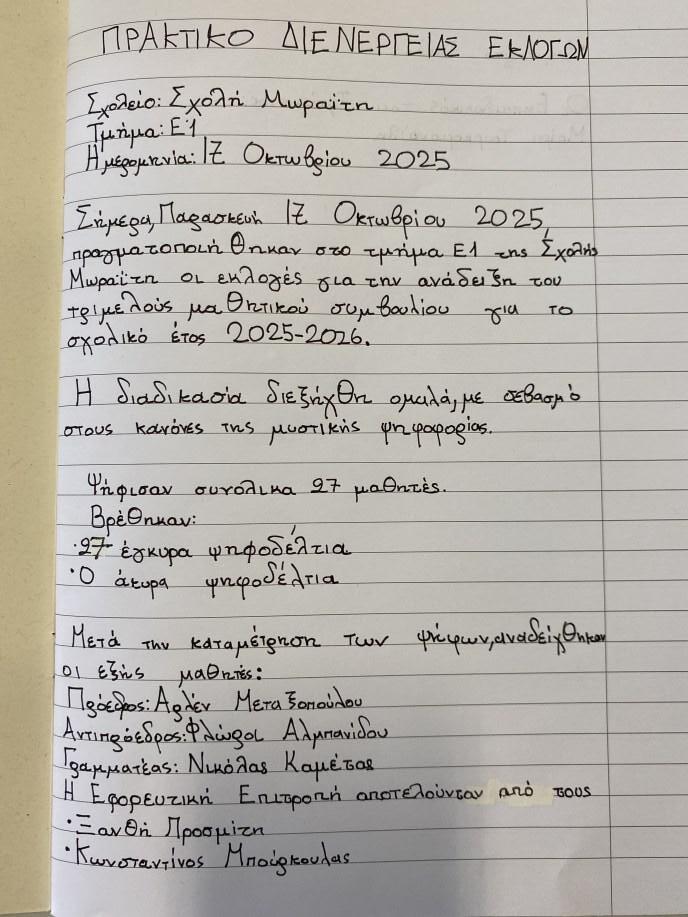 ΠΡΑΚΤΙΚΟ ΔΙΕΝΕΡΓΕΙΑΣ ΕΚΛΟΓΩΝ
Σχολείο: Σχολή Μωραΐτη
Τμήμα: Ε1
Ημερομηνία: 17 Οκτωβρίου 2025
Σήμερα, Παρασκευή 17 Οκτωβρίου 2025,
πραγματοποιήθηκαν στο τμήμα Ε1 της Σχολής
Μωραΐτη οι εκλογές για την ανάδειξη του
τριμελούς μαθητικού συμβουλίου για το
σχολικό έτος 2025-2026.
Η διαδικασία διεξήχθη ομαλά, με σεβασμό
στους κανόνες της μυστικής ψηφοφορίας.
Ψήφισαν συνολικα 27 μαθητές.
Βρέθηκαν:
·27 έγκυρα ψηφοδέλτια
·0 άκυρα ψηφοδέλτια
Μετά την καταμέτρηση των ψήφων, αναδείχθηκαν
οι εξής μαθητές:
Πρόεδρος: Αρλέν Μεταξοπούλου
Αντιπρόεδρος: Φλώρα Αλμπανίδου
Γραμματέας: Νικόλας Καμέτας
Η Εφορευτική Επιτροπή αποτελούνταν από τους
·Ξανθή Προσμίτη
·Κωνσταντίνος Μπούρκουλας